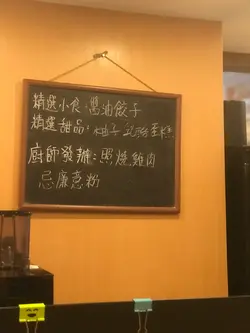 精選小食:醬油餃子
精選甜品:柚子芝麻蛋糕
廚師發辦:照燒雞肉
忌廉意粉